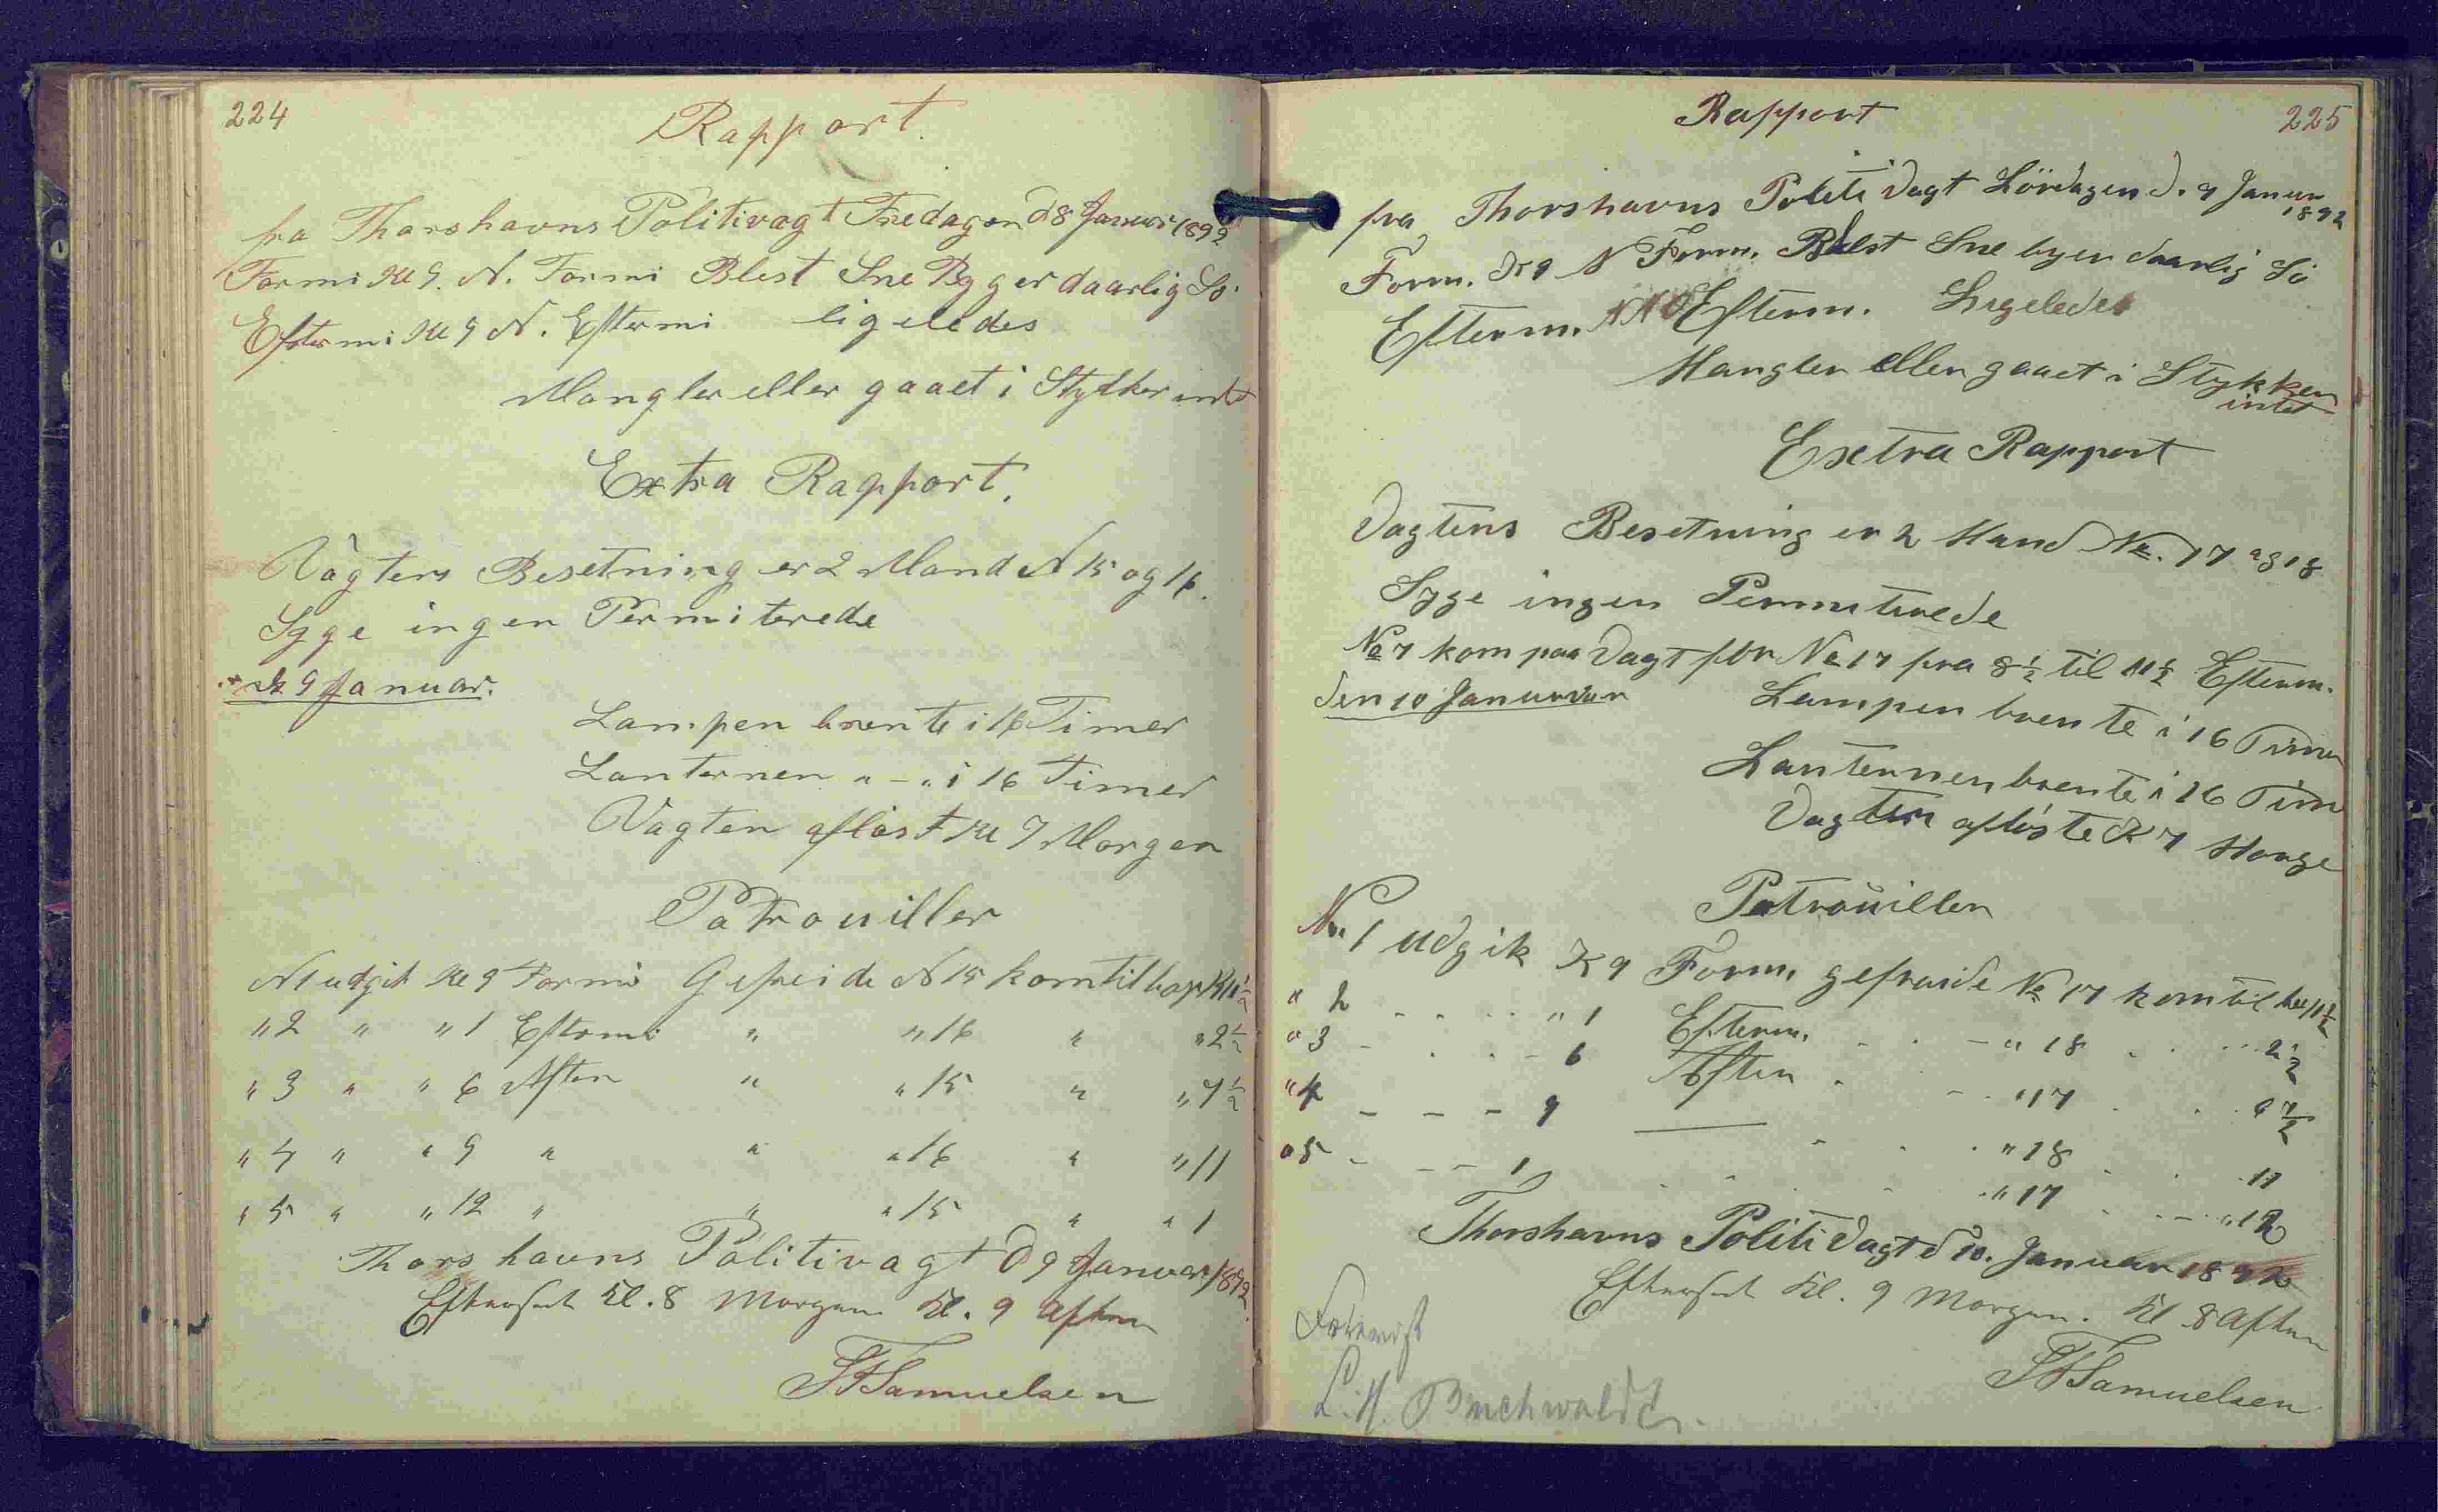 224
Rapport.
fra Thorshavns Politivagt Fredagen d 8 Januar 1892
Formi Kl 9. N. Formi Blest Sne Byger daarlig Sø.
Eftermi Kl 9 N. Eftermi ligeledes
Mangler eller gaaet i Stykker intet
Extra Rapport.
Vagtens Besetning er 2 Mand N 15 og 16.
Syge ingen Permiterede
d 9 Januar.
Lampen brente i 16 Timer
Lanternen " - " i 16 Timer
Vagten afløst Kl 7 Morgen
Patrouiller
N 1 udgik Kl 9 Formi Gefreide N 15 kom tilbag Kl 11 1/2
" 2 " " 1 Eftermi " " 16 " " 2 1/2
" 3 " " 6 Aften " " 15 " " 7 1/2
" 4 " " 9 " " " 16 " " 11
" 5 " " 12 " " " 15 " " 1
Thorshavns Politivagt d 9 Januar 1892.
Efterseet Kl. 8 Morgen Kl. 9 Aften
Samuelsen
Rapport
225
fra Thorshavns Politi Vagt Lördagen d. 9 Januar
1892
Form. K 9 N Form. Blest Sne byer daarlig Sö
Efterm. NNO Efterm. Ligeledes
Mangler eller gaaet i Stykker
intet
Exetra Rapport
Vagtens Besetning er 2 Mand No. 17 og 18
Syge ingen Permiterede
No 7 kom paa Vagt for No 17 fra 8 1/2 til 11 1/2 Efterm.
den 10 Januar
Lampen brente i 16 Timer
Lanternen brente i 16 Tim
Vagten afløste K 7 Morge
Patrouiller
No. 1 udgik K 9 Form. gefraide No 17 kom til Kl 11 1/2
" 2 - - - - " 1 Efterm. - - - " 18 - - - 2 1/2
" 3 - - - - 6 Aften - - - " 17 - - - 7 1/2
" 4 - - - 9 — - - - " 18 - - 11
" 5 - - - 1 - - - - " 17 - - - " 12
Thorshavns Politi Vagt d 10. Januar 1892
Efterseet Kl. 9 Morgen. Kl 8 Aften
Samuelsen
Forevist
L. H. Buchwaldt